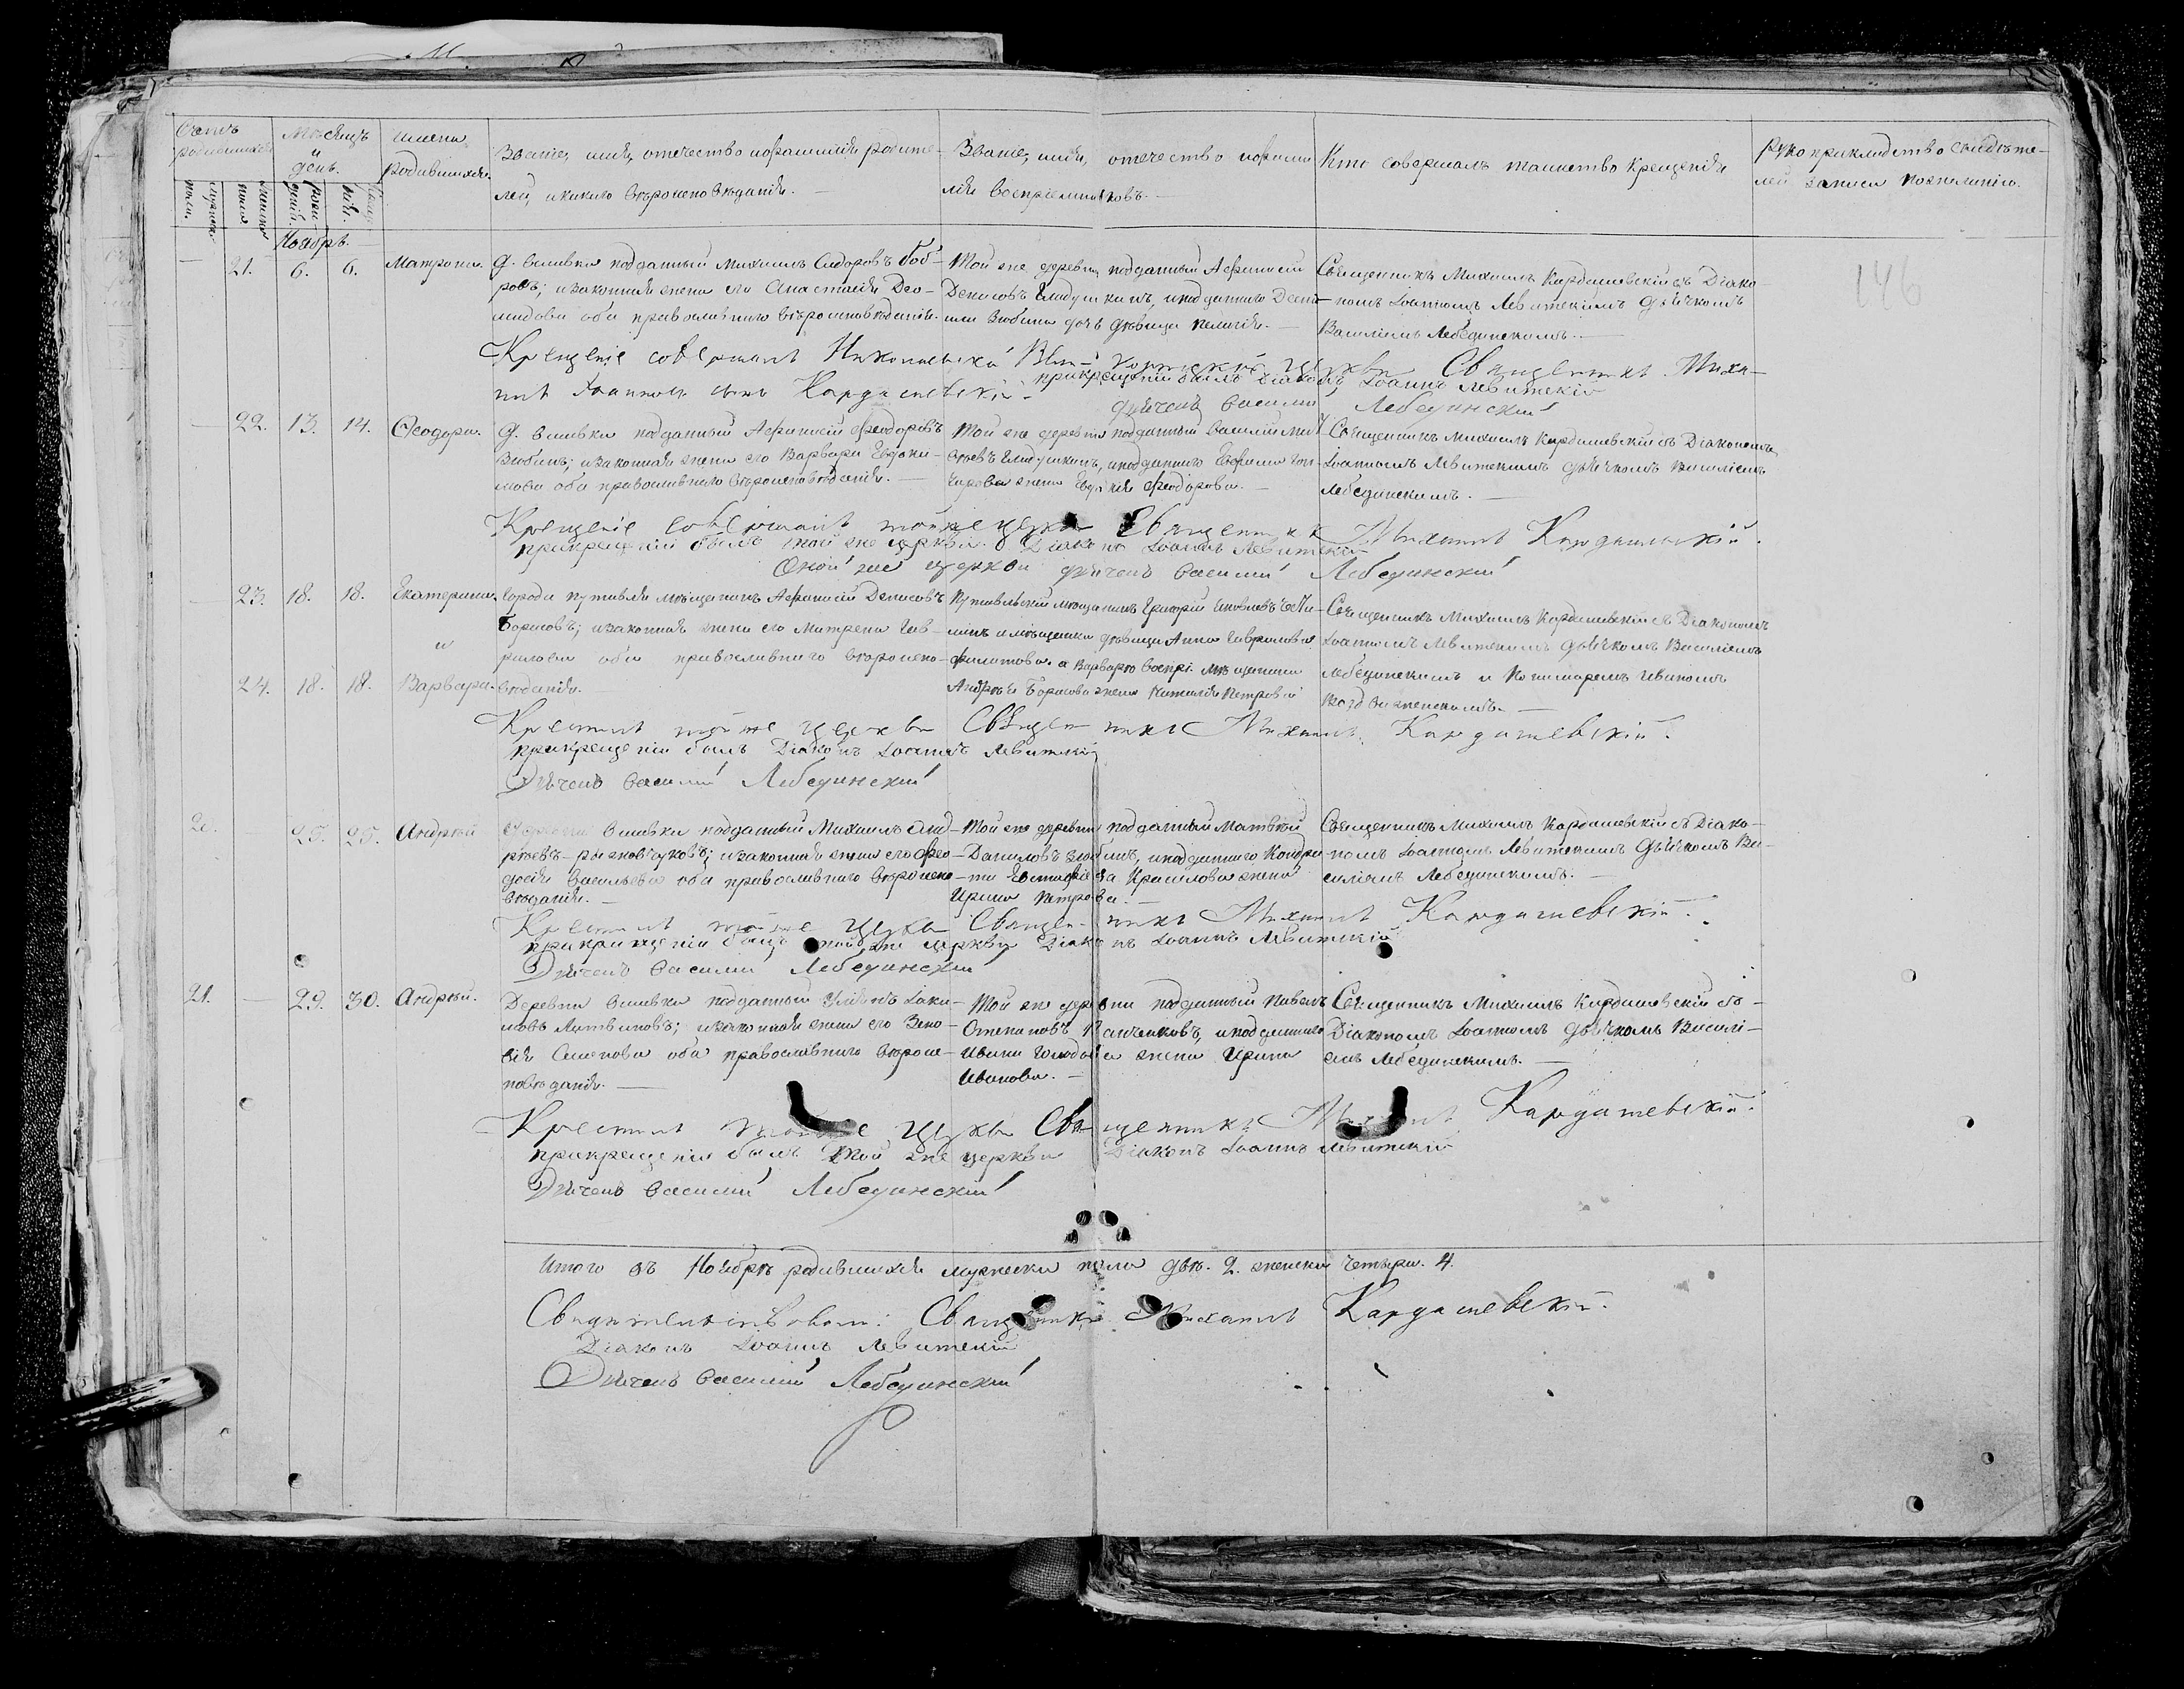 Счетъ родившихся
Мѣсяцъ и день.
Имена родившихся.
Званіе, имя, отечество и фамилія родите-
лей, и какого вѣроисповѣданія.
Званіе, имя, отечество и фами-
лія воспріемниковъ.
Кто совершалъ таинство крещенія
Рукоприкладство свидѣте-
лей записи по желанію.
Ноябрь.
146
— 21. 6. 6. Матрона.
Д. Вшивки подданный Михаилъ Сидоровъ Боб-
ровъ; и законная жена его Анастасія Део-
мидова оба православнаго вѣроисповѣданія.
Той же деревни подданный Афанасій
Денисовъ, и подданнаго
Зюбина дочь дѣвица Пелагія.
Священникъ Михаилъ Кардашевскій съ Діако-
номъ Іоанномъ Левитскимъ дьячкомъ
Василіемъ Лебединскимъ.
Крещеніе совершалъ церкви Священникъ Миха-
илъ Іоанновъ сынъ Кардашевскій.
при крещеніи былъ Діаконъ Іоаннъ Левитскій
Дьячекъ Василий Лебединский
— 22. 13. 14. Ѳеодора.
Д. Вшивки подданный Афанасій Феодоровъ
Зюбинъ; и законная жена его Варвара Евдоки-
мова оба православнаго вѣроисповѣданія.
Той же деревни подданный Василій
и подданнаго Ефима Гон-
чарова жена Евдокія Феодорова.
Священникъ Михаилъ Кардашевскій съ Діакономъ
Іоанномъ Левитскимъ дьячкомъ Василіемъ
Лебединскимъ.
Крещеніе совершалъ той же церкви Священникъ Михаилъ Кардашевскій.
при крещеніи былъ той же церкви Діаконъ Іоаннъ Левитскій
Оной же церкви дьячекъ Василий Лебединский
— 23. 18. 18. Екатерина
и
24. 18. 18. Варвара.
Города Путивля мѣщанинъ Афанасій Денисовъ
Борисовъ; и законная жена его Матрена Гав-
рилова оба православнаго вѣроиспо-
вѣданія.
Путивльскій мѣщанинъ Григорій Яковлевъ
и мѣщанка дѣвица Анна Гаврилова
Филатова. а Варвару воспрі. мѣщанина
Андрея Борисова жена Наталія Петрова
Священникъ Михаилъ Кардашевскій съ Діакономъ
Іоанномъ Левитскимъ дьячкомъ Василіемъ
Лебединскимъ и Пономаремъ Иваномъ
Воздвиженскимъ.
Крестилъ той же церкви Священникъ Михаилъ Кардашевскій.
при крещеніи былъ Діаконъ Іоаннъ Левитскій
Дьячекъ Василий Лебединский
20. 25. 25. Андрей
Деревни Вшивки подданный Михаилъ Анд-
реевъ; и законная жена его Фео-
досія Васильева оба православнаго вѣроиспо-
вѣданія.
Той же деревни подданный Матвѣй
Даниловъ Зюбинъ, и подданнаго Кондра-
та Евстафіева жена
Ирина Петрова.
Священникъ Михаилъ Кардашевскій съ Діако-
номъ Іоанномъ Левитскимъ дьячкомъ Ва-
силіемъ Лебединскимъ.
Крестилъ той же церкви Священникъ Михаилъ Кардашевскій.
при крещеніи былъ той же церкви Діаконъ Іоаннъ Левитскій
Дьячекъ Василий Лебединский
21. — 29. 30. Андрей.
Деревни Вшивки подданный Яки-
мовъ Литвиновъ; и законная жена его Зено-
вія Семенова оба православнаго вѣроис-
повѣданія.
Той же деревни подданный Павелъ
Степановъ, и подданнаго
Ивана жена Ирина
Иванова.
Священникъ Михаилъ Кардашевскій съ
Діакономъ Іоанномъ дьячкомъ Василі-
емъ Лебединскимъ.
Крестилъ той же церкви Священникъ Михаилъ Кардашевскій.
при крещеніи былъ той же церкви Діаконъ Іоаннъ Левитскій
Дьячекъ Василий Лебединский
Итого въ Ноябрѣ родившихся мужеска пола два. 2. женска четыре. 4.
Свидѣтельствовали: Священникъ Михаилъ Кардашевскій.
Діаконъ Іоаннъ Левитскій
Дьячекъ Василий Лебединский